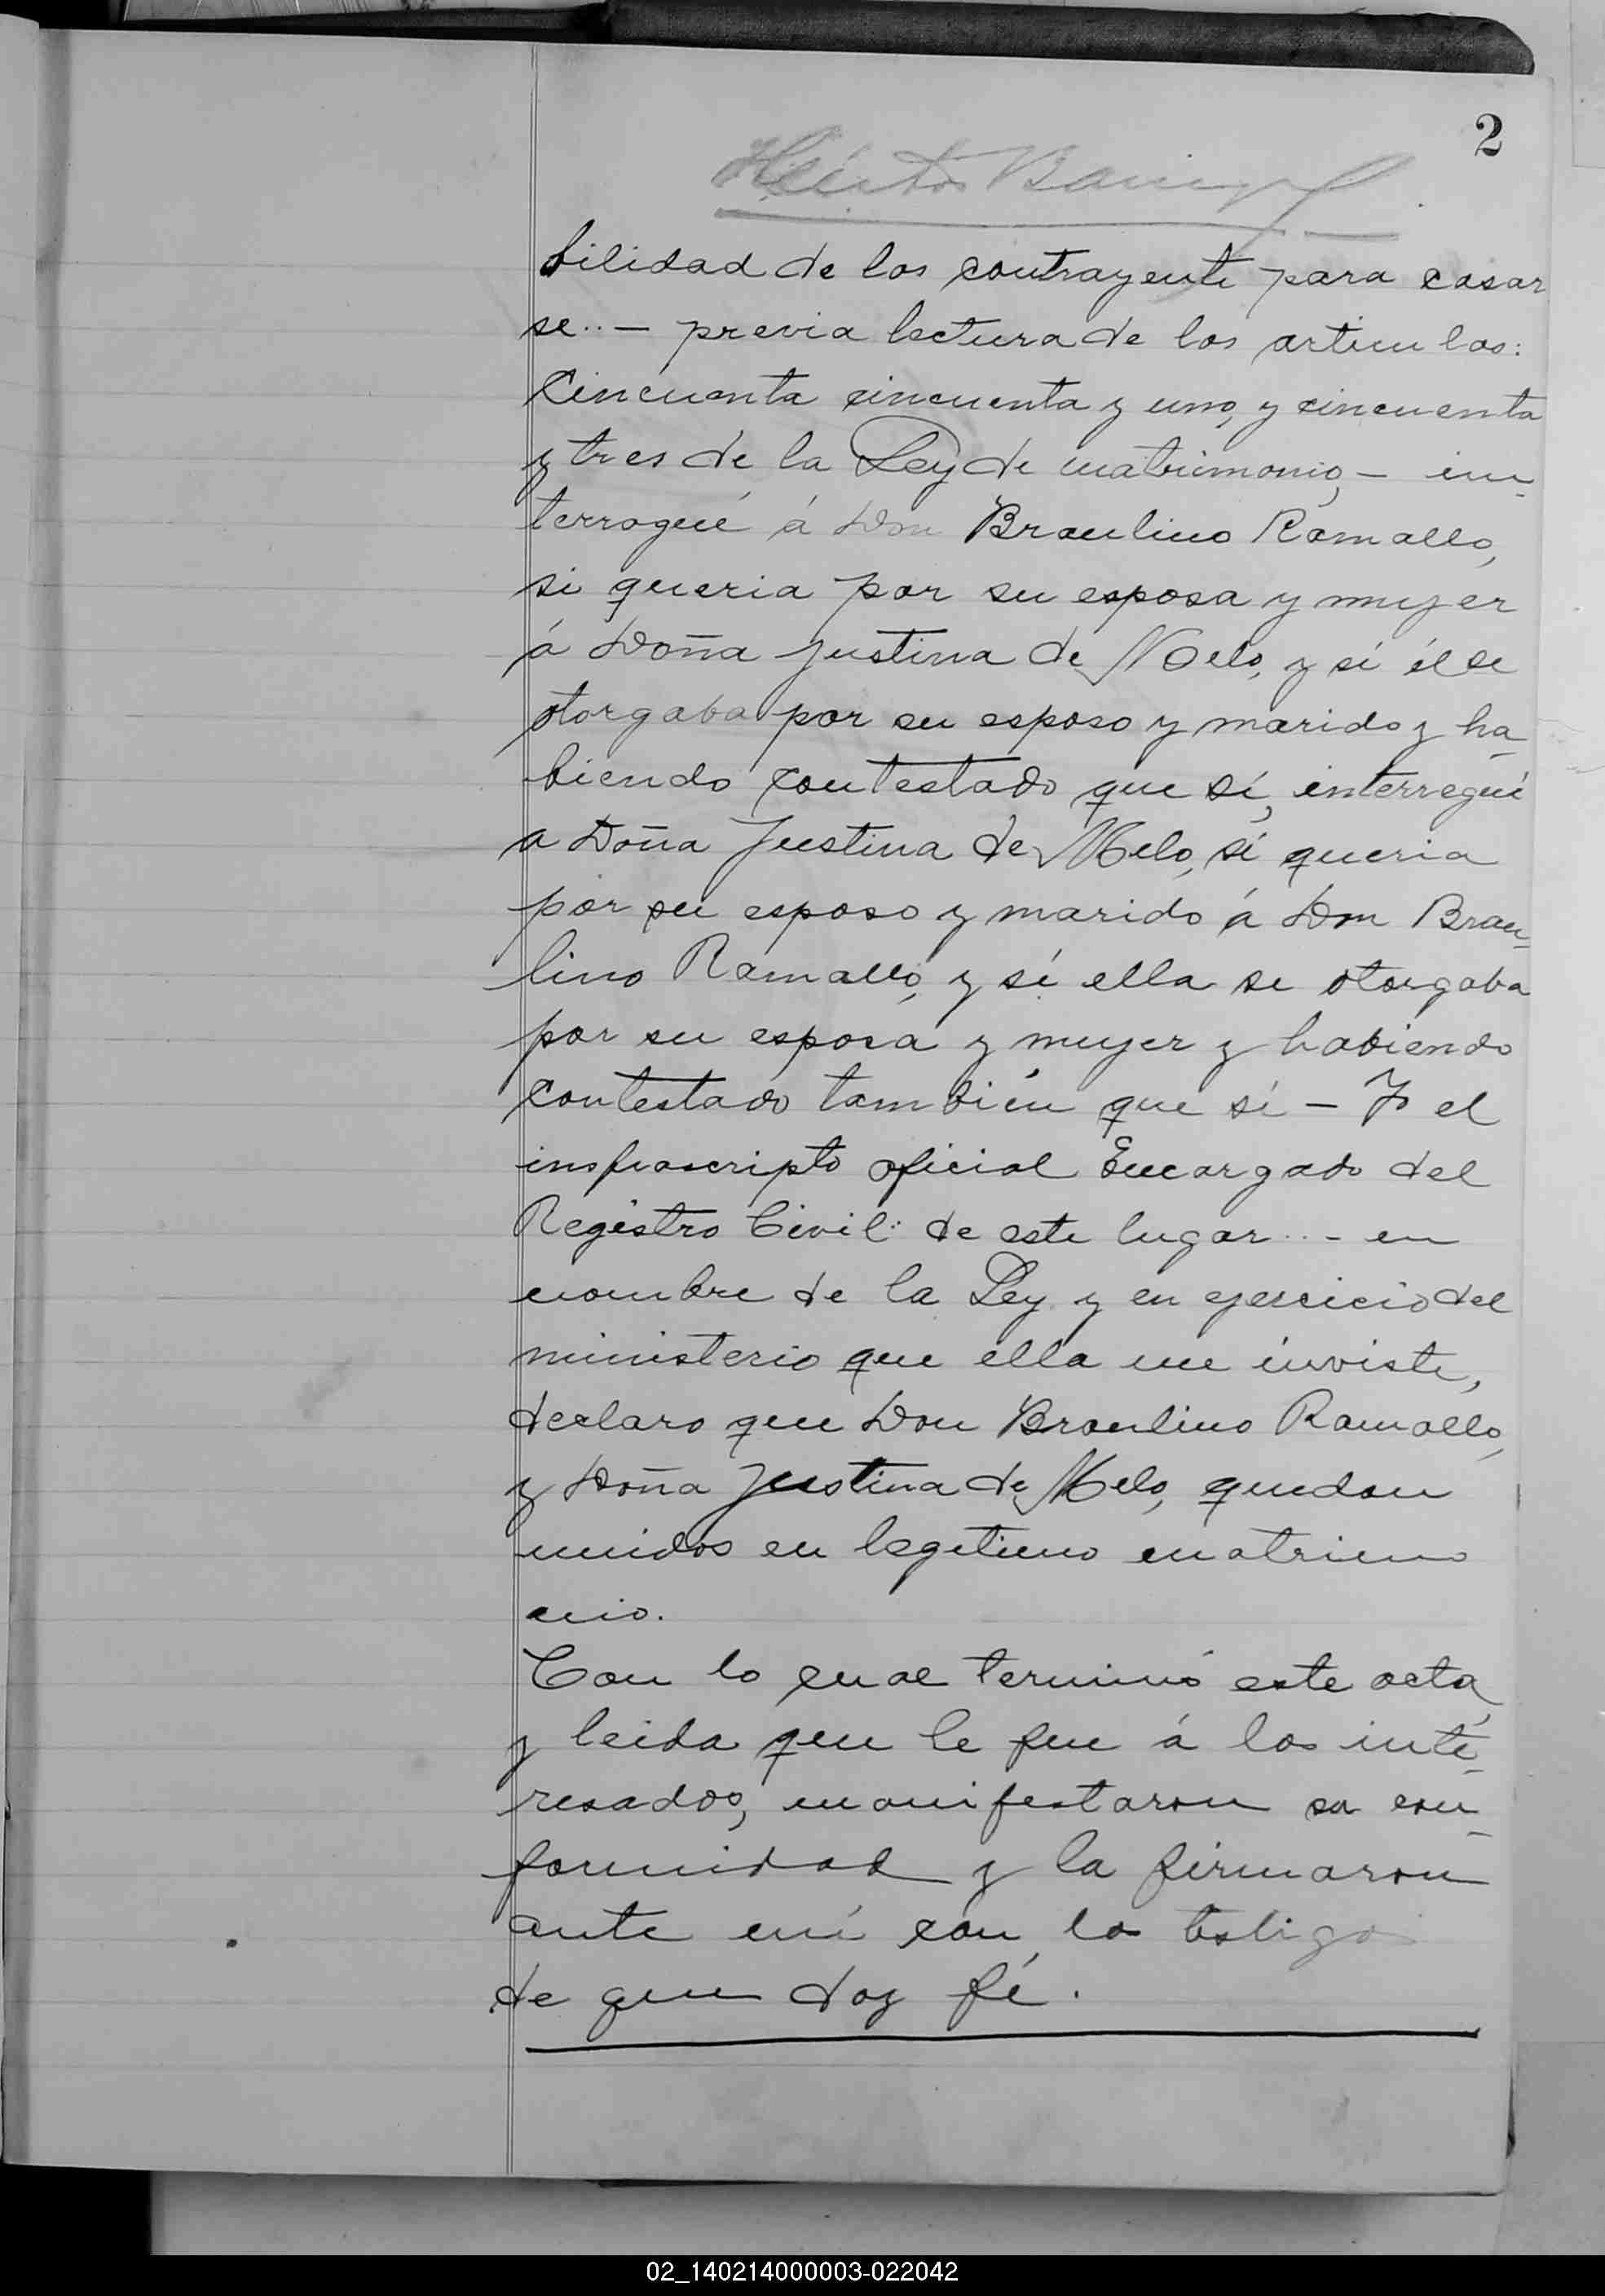 2
bilidad de los contrayente para casar
se..— previa lectura de los articulos:
Cincuenta cincuenta y uno, y cincuenta
y tres de la Ley de matrimonio,— in-
terrogué á Don Braulino Ramallo,
si queria por su esposa y mujer
á Doña Justina de Melo, y si él se
otorgaba por su esposo y marido y ha-
biendo contestado que sí, interregué
a Doña Justina de Melo, si queria
por su esposo y marido á Don Brau-
lino Ramallo, y si ella se otorgaba
por su esposa y mujer y habiendo
contestado también que sí — Yo el
infrascripto oficial Encargado del
Registro Civil: de este lugar..- en
nombre de la Ley y en ejercicio del
ministerio que ella me inviste,
declaro que Don Braulino Ramallo,
y Doña Justina de Melo, quedan
unidos en legitimo matrimo
nio.
Con lo cual terminó este acta,
y leida que le fue á los inte-
resados, manifestaron su con-
formidad y la firmaron
ante mí con los testigos
de que doy fé.
02_140214000003-022042